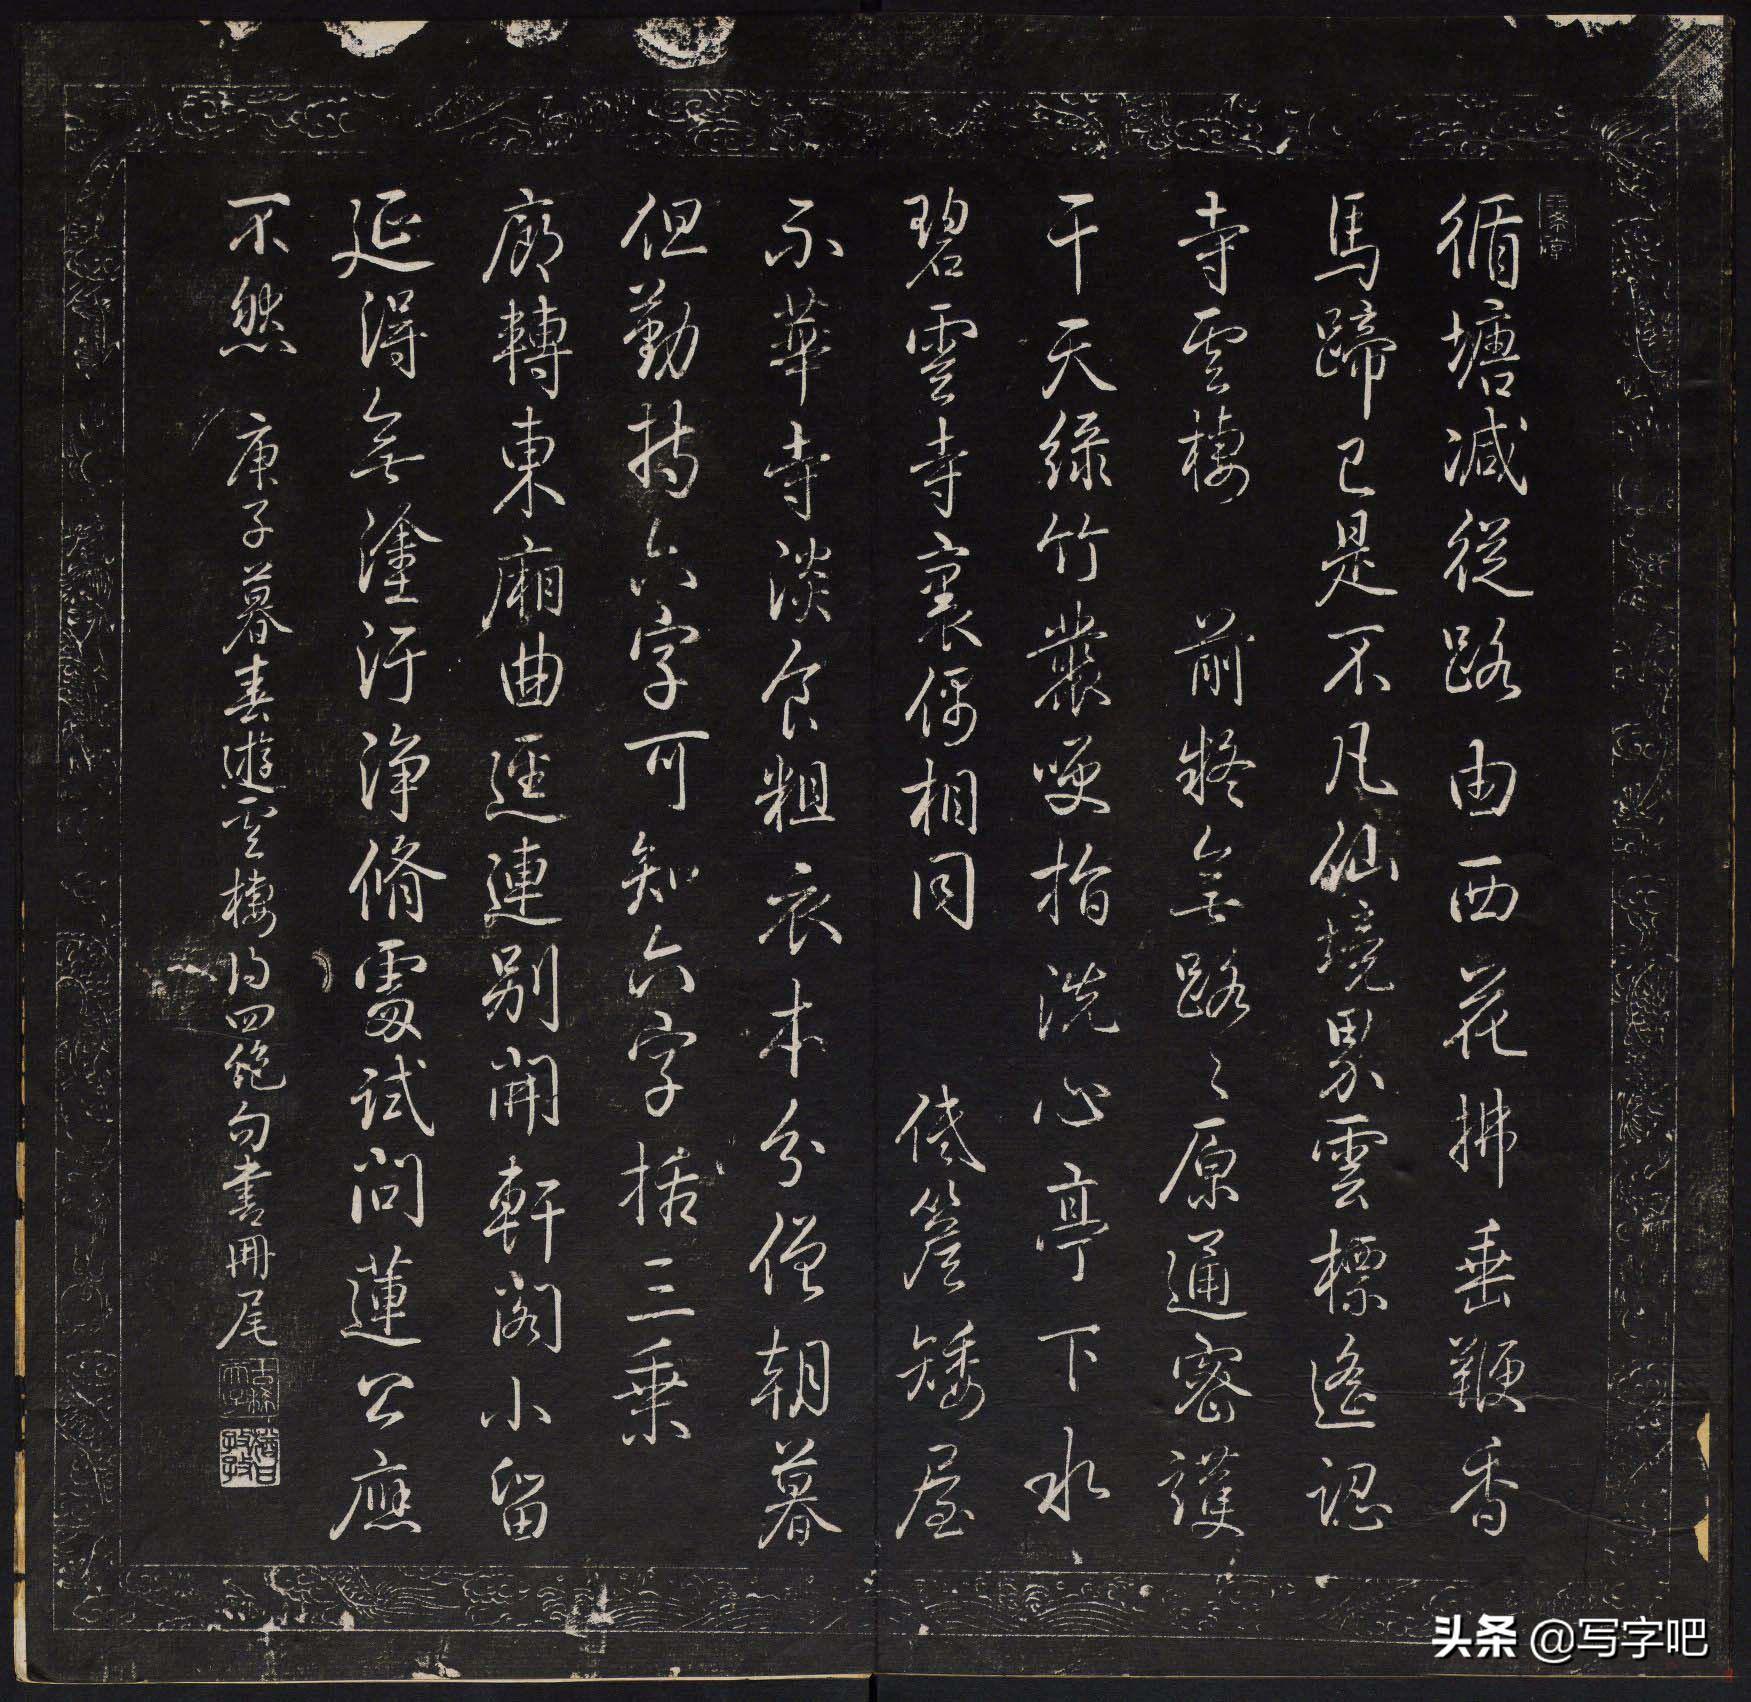 循塘減從路由西花拂垂鞭香
馬蹄已是不凡仙境界雲標遙認
寺雲棲 前疑無路〻原通密護
干天綠竹叢咲指洗心亭下水
碧雲寺裏偶相同 低簷矮屋
不華寺淡食粗衣本分僧朝暮
但勤持六字可知六字括三乘
廊轉東廂曲逕連別開軒閣小留
延得無塗汙淨脩處試問蓮公應
不然 庚子暮春遊雲棲得四絕句書冊尾
古稀天子
猶日孜孜
头条 @写字吧